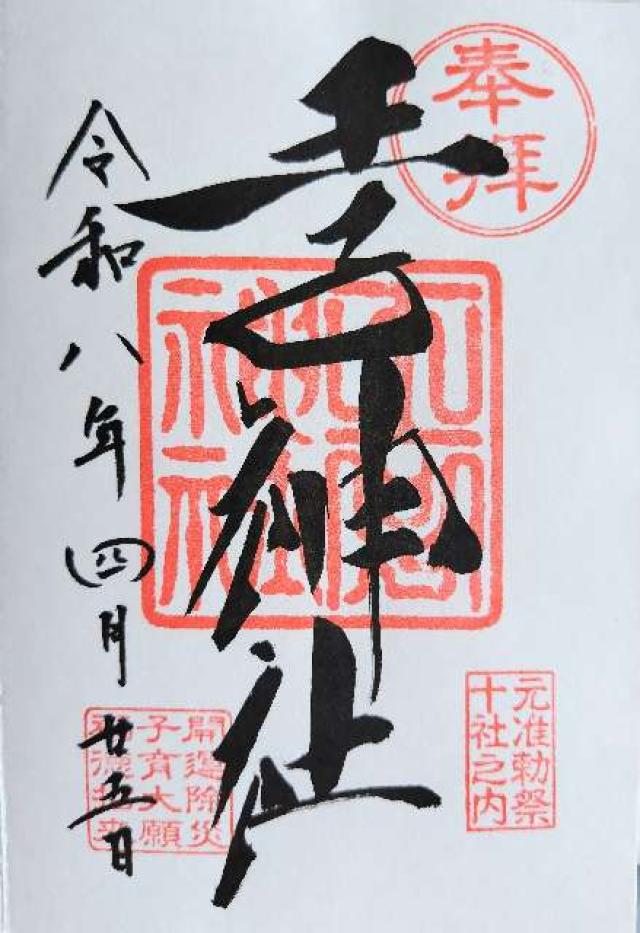 奉拝
王子神社
元准勅祭
十社之内
令和八年四月廿五日
開運除災
子育大願